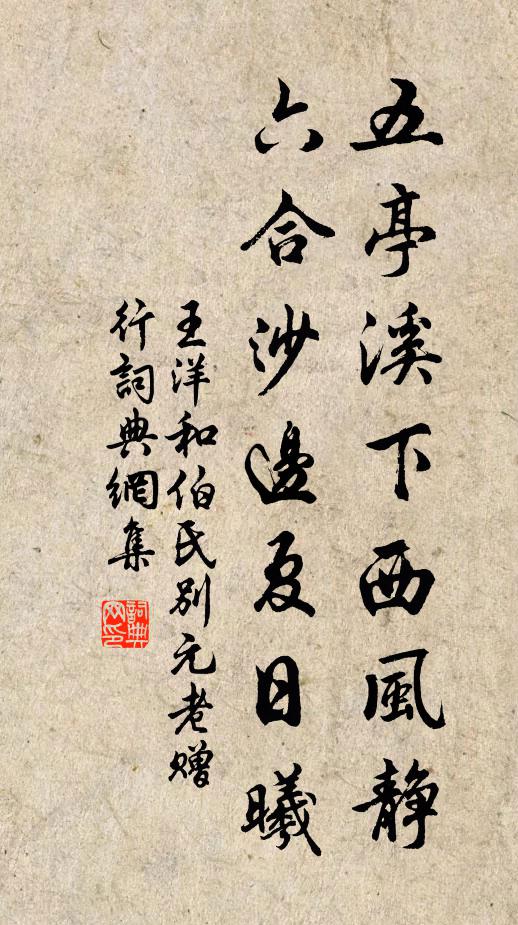 五亭溪下西風静
六合沙邊夏日曦
王洋和伯氏别元老赠
行詞典網集
詞典网印